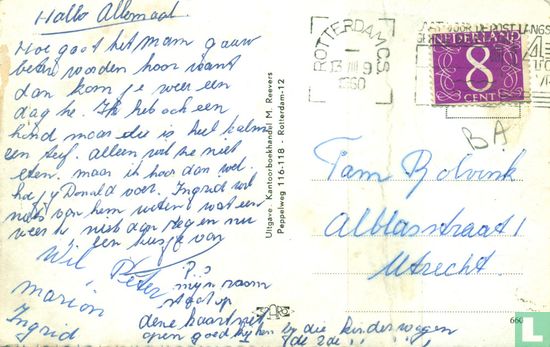 Hallo Allemaal
Hoe gaat het Mam gauw
beter worden hoor want
dan kom je weer een
dag he. Ik heb ook een
hond maar die is heel kalm
een teef. alleen wil ze niet
eten. maar ik hoor dan wel.
hoe jy Donald voer. Ingrid wil
niets van hem weten wat een
weer he niet dan regen en nu
een huisje van
Wil, Peter
Marion
Ingrid
P.S
myn naam
staat op
deze kaart
open goed kyken by die kinderwagen
de 2de
Uitgave: Kantoorboekhandel M. Reevers
Peppelweg 116-118 - Rotterdam-12
ROTTERDAM CS
13 III 9
1960
NEDERLAND
8
CENT
BA
Fam Bolvink
Alblasstraat 1
Utrecht.
660